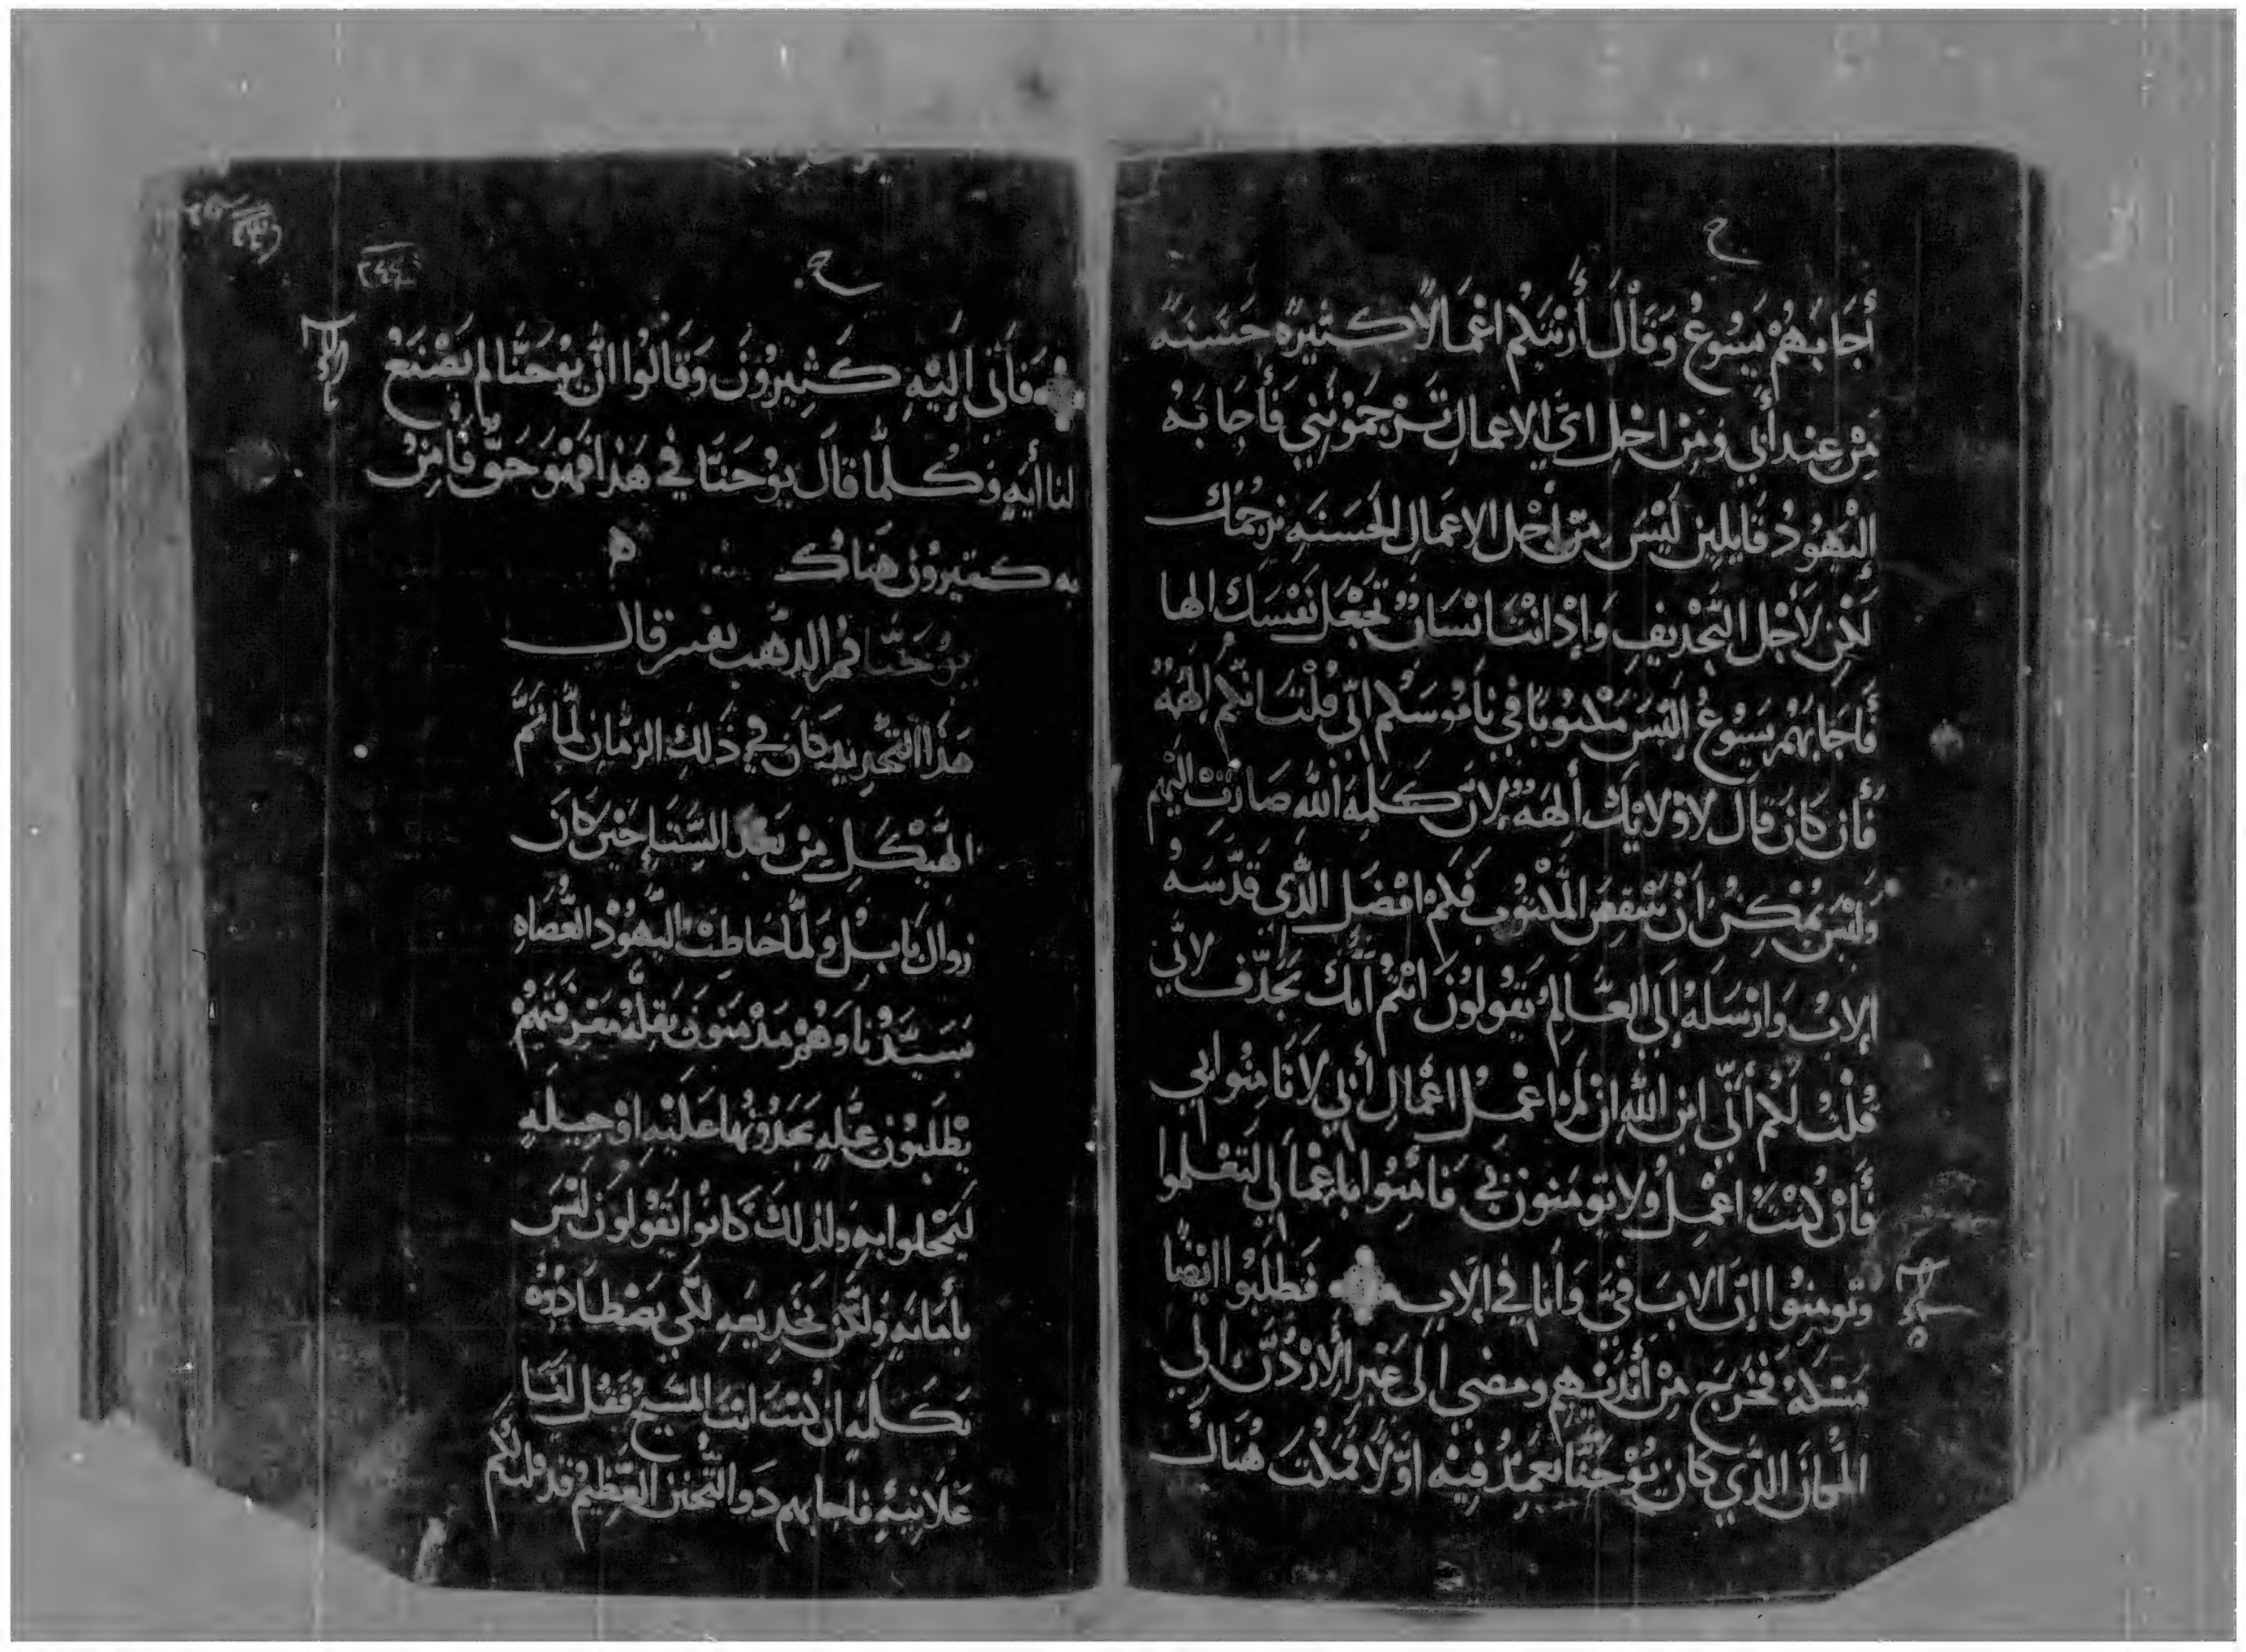 ح
أَجَابَهُمْ يَسُوعُ وَقَالَ أَرَيْتكُم اعْمَالًا كثيرَه حَسَنَه
مِنْ عِند أَبي وَمِنْ اجْل ايّ الاعمالِ تَرْجمُوُنني فَأَجَابَهُ
اليَهُودُ قَايلين لَيْسَ مِنْ أجْل الاعمَالِ الحَسَنَهِ نرجُمك
لَكِن لأَجْل التَّجْديفِ وَإِذ انتَ انْسَانٌ تَجْعَل نَفْسَك الها
فَأَجَابَهُم يَسُوعُ اليْسَ مَكتوبًا في نَامُوسَكُم انّي قُلْتُ انكُم الهَهٌ
فَأن كَانَ قال لاوْلايك ألهَهٌ لانّ كَلِمة الله صَارَت اليْهم
وَليْسَ يُمْكِنُ أَنْ يَنْتَقِضَ المكْتُوب فَكَم افضَل الذَّي قدَّسَهُ
الابُ وَارْسَلَهُ إلي العَالم تَقُولُونَ انْتُمْ انَّك تُجَدّف لانّي
قُلتُ لَكُمْ أَنّي ابن الله ان لَمْ اعْمَلُ اعْمَالِ أَبي لا تَامِنُوا بي
فَأنْ كُنْتُ اعْمِلُ ولا تومنون بي فَامِنُوا باعْمَالي لتَعْلموا
وتومِنُوا انّ الابَ فيَّ وَأنا في الاب فَطَلبُوا ايضًا
مَسْكَهُ فَخَرَجَ مِنْ أَيْديْهم ومضي الَي عَبْرِ الأرْدُنّ الي
المكان الذَّي كان يُوْحَنَّا يَعمّدُ فيْه اوّلًا فَمَكث هُنَاك
ح
فَأتى إليْهِ كَثِيرُونَ وَقَالُوا انَّ يُوْحَنَّا لم يَصْنَعْ
لنا أيه وَكُلّما قَال يُوْحَنّا في هَذا فَهْوَ حَقّ فَامِنْ
به كثيرُون هُنَاك
يُوحَنَّا فم الذّهَب يفسر قال
هَذا التّجْديد كَان في ذَلك الزمَان لمّا تمَّ
الهَيْكَل مِنْ بَعْد السَّبْيِ حِيْن كَانَ
زوال بَابل وَلمّا احَاطت اليَهُوْد العُصَاه
بسَيّدْنا وَهُمْ بقلّة مَعْرفَتَهِمْ
يْطلبون عِلّه يجدُونَهَا عَلَيْه اوْ حِيله
ليَمْحَلوا به ولذلك كَانوا يَقُولون ليْسَ
بأمانه وَلَكن بخَديعَه لكَي يَصْطَادُوْه
بكَلمَه ان كنت انت المَسيح فَقُل لنَا
عَلانيَةً فاجابهم ذو التّحنن العَظيم قد قلت لكم